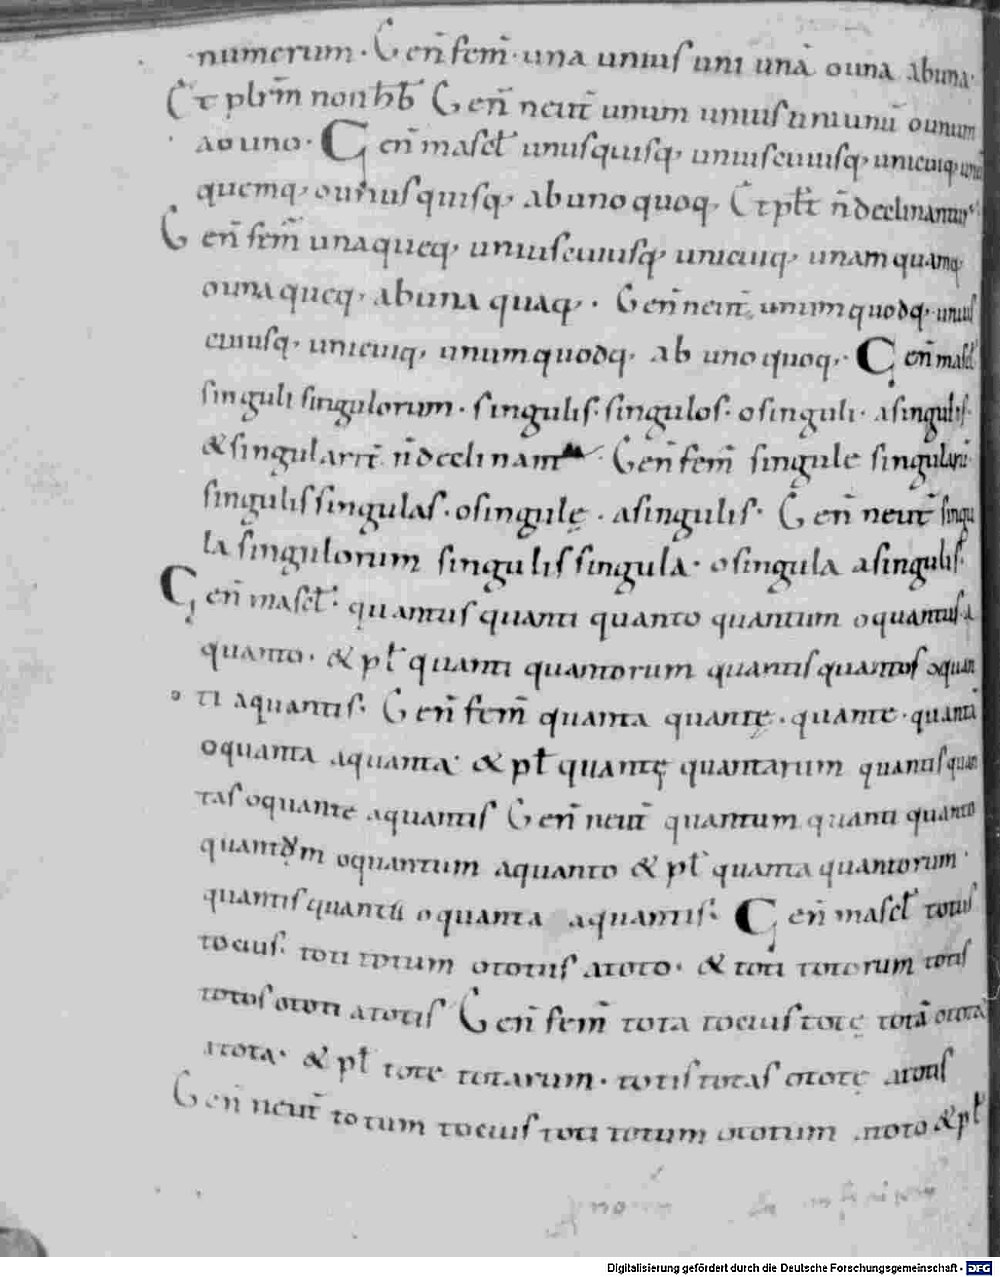 numerum. Geñ fem̄. una unius uni unā ouna abuna.
Et plr̄m non hb̄ Geñ neut̄ unum unius uni unū ounum
abuno. Geñ mascł unusquisq; uniuscuiusq; unicuiq; unū
quemq; ounusquisq; abunoquoq; Et płr ñ declinantur.
Geñ fem̄ unaqueq; uniuscuiusq; unicuiq; unam quamq;
ounaqueq; abuna quaq;. Geñ neut̄ unumquodq; unius
cuiusq; unicuiq; unumquodq; ab uno quoq;. Geñ mascł
singuli singulorum. singulis. singulos. osinguli. asingulis.
&singulariī ñ declinam Geñ fem̄ singule singularū.
singulis singulas. osingulę. asingulis. Geñ neut̄ singu
la singulorum singulis singula. osingula asingulis.
Geñ mascł. quantus quanti quanto quantum oquantus. a
quanto. & pł quanti quantorum quantis quantos oquan
ti aquantis. Geñ fem̄ quanta quantę. quante. quantā
oquanta aquanta. & pł quantę quantarum quantis quan
tas oquante aquantis Geñ neut̄ quantum quanti quanto
quantum oquantum aquanto & pł quanta quantorum.
quantis quantū oquanta aquantis. Geñ mascł totus
tocius. toti totum ototus atoto. & toti totorum totis
totos ototi atotis Geñ fem̄ tota tocius totę totā otota
atota. & pł tote totarum. totis totas ototę atotis
Geñ neut̄ totum tocius toti totum ototum atoto & pł
Digitalisierung gefördert durch die Deutsche Forschungsgemeinschaft - DFG